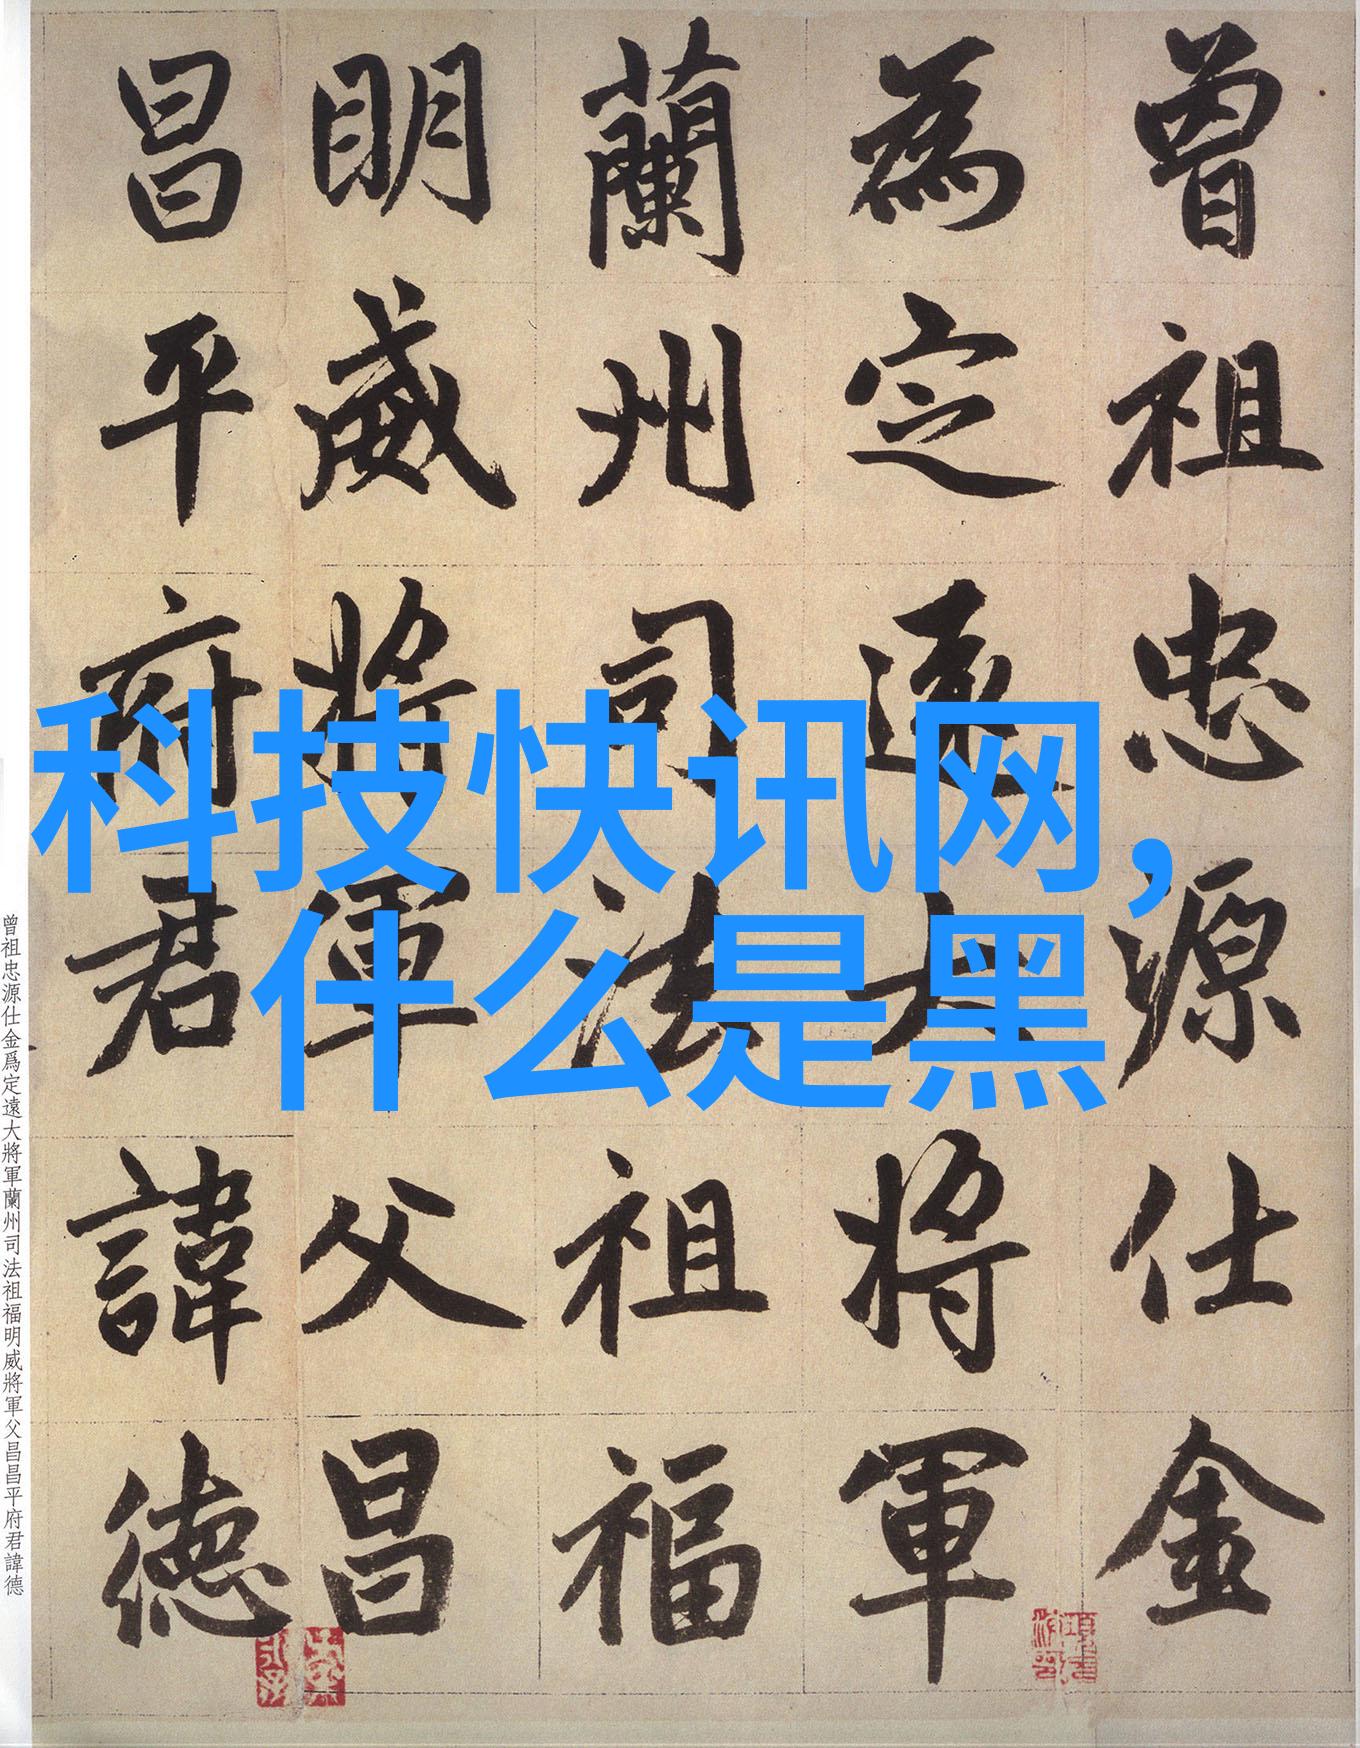 曾祖忠源仕金
為定遠大將軍
蘭州司法祖福
明威將軍父昌
昌平府君諱德
科技快讯网,
什么是黑
曾祖忠源仕金爲定遠大將軍蘭州司法祖福明威將軍父昌昌平府君諱德